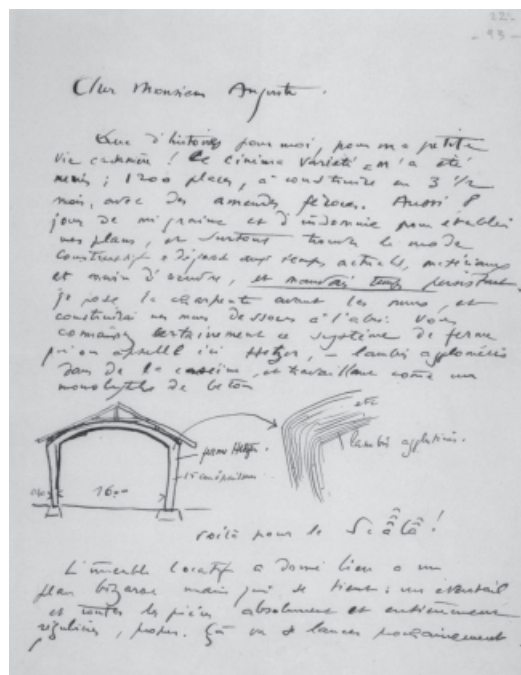 22
- 93 -
Cher Monsieur Auguste.
Que d'histoires pour moi, pour ma petite
vie ! Le cinéma Variété m'a été
remis ; 1200 places, à construire en 3 1/2
mois, avec des amendes féroces. Aussi 8
jours de migraine et d'insomnie pour établir
mes plans, et surtout trouver le mode
constructif adéquat aux temps actuels, matériaux
et main d'œuvre, et mauvais temps persistant.
je pose la charpente avant les murs, et
construirai mes murs dessous à l'abri. Vous
connaissez certainement ce système de ferme
qu'on appelle ici Hetzer, – lambris agglomérés
dans de la caséine, et travaillant comme un
monolythe de béton
etc
ferme Hetzer
lambris agglutinés.
16.00
voilà pour le Scâlâ !
L'immeuble locatif a donné lieu à un
plan bizarre mais qui se tient : un éventail
et toutes les pièces absolument et entièrement
régulières, propres. Çà va se lancer prochainement